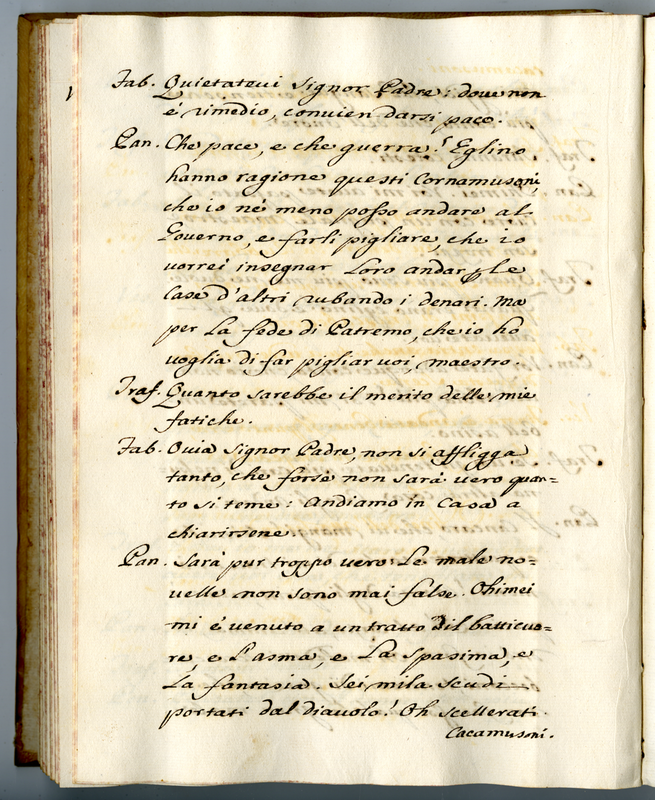 Fab. Quietatevi Signor Padre: dove non
è rimedio, convien darsi pace.
Pan. Che pace, e che guerra! Eglino
hanno ragione questi Cornamusoni,
che io né meno posso andare al
Governo, e farli pigliare, che io
vorrei insegnar Loro andar p le
Case d'altri rubando i denari. Ma
per La fede di Patremo, che io hó
voglia di far pigliar voi, maestro.
Traf. Quanto sarebbe il merito delle mie
fatiche.
Fab. Ovia Signor Padre, non si affligga
tanto, che forse non sarà vero quan=
to si teme: Andiamo in Casa a
chiarirsene.
Pan. Sarà pur troppo vero: Le male no=
velle non sono mai false. Ohimei
mi é venuto a un tratto il batticuo=
re, e L'asma, e La Spasima, e
La fantasia. Sei mila scudi
portati dal diavolo! Oh scellerati.
Cacamusoni.